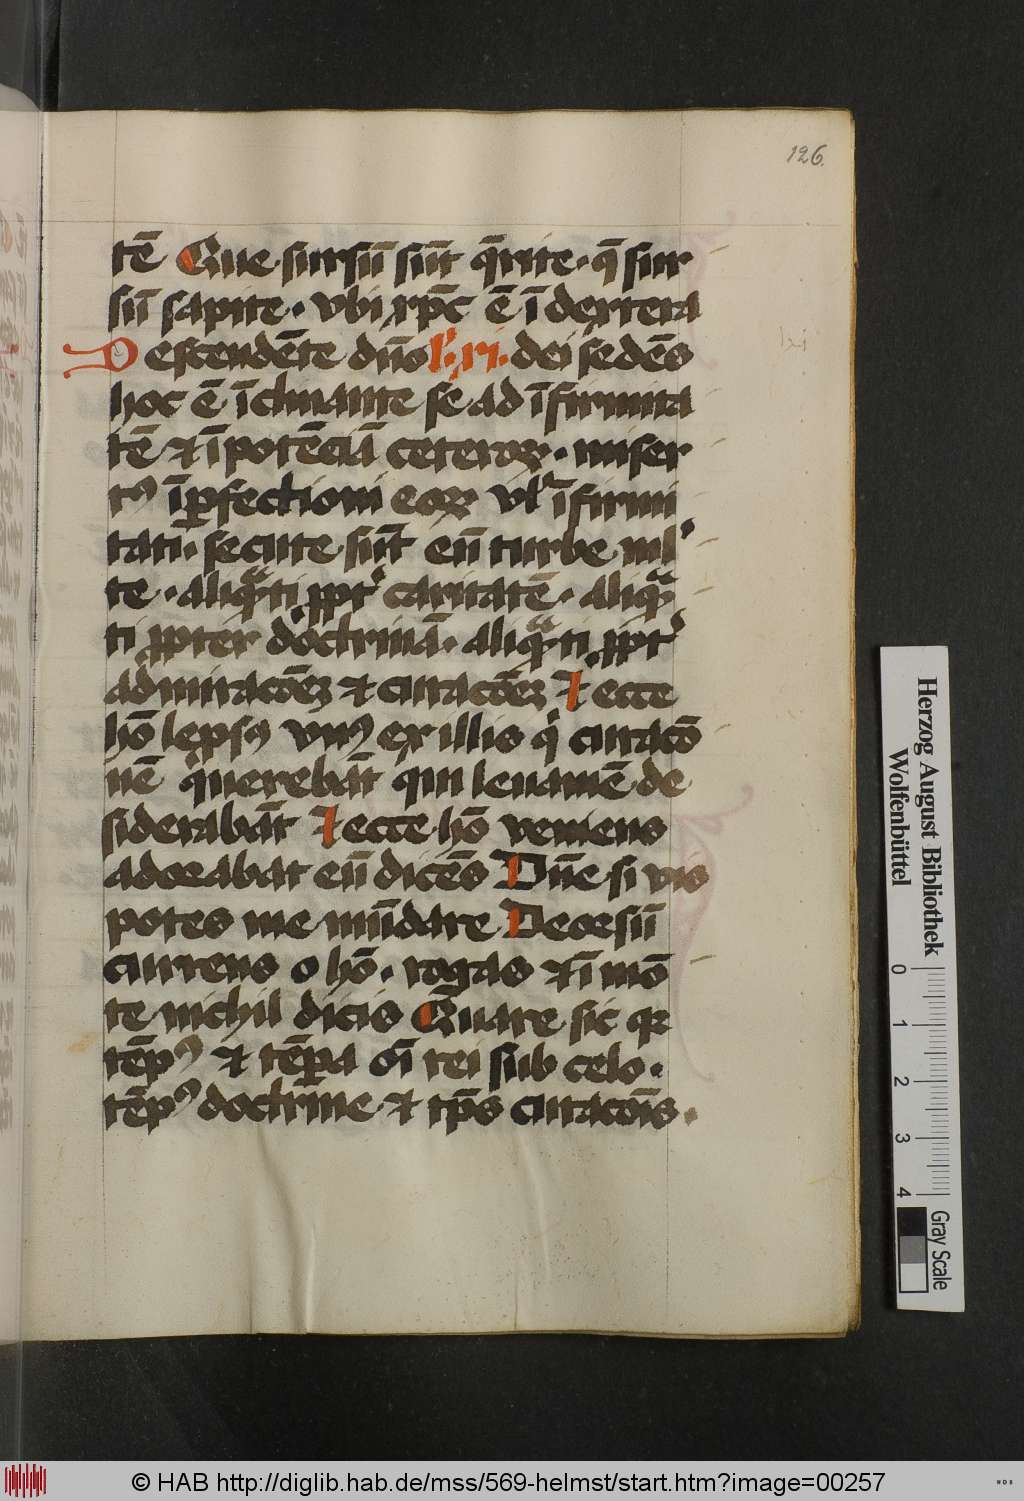 126.
tē Que sursū sūt q̄rite · q̄ sur
sū sapite · vbi xp̄c ē ī dextera
Descendēte dn̄o l. xi. dei sedēs
hoc ē īclinante se ad īfirmita
tē et īpotēciā ceteroꝝ · miser
tꝰ īꝑfectioni eoꝝ vl̓ īfirmi
tati · secute sūt eū turbe ml̓
te · aliqͣti ꝓpt̓ caritatē · aliqͣ
ti ꝓpter doctrinā · aliqͣti ꝓpt̓
admiracōeꝫ et curacōeꝫ Et ecce
hō lepsꝰ vnꝰ ex illis qͥ curacō
nē querebāt qui leuamē de
siderabāt Et ecce hō veniens
adorabat eū dicēs Dn̄e si vis
potes me mūdare Deorsū
currens o hō · rogas et ī mō
te nichil dicis Quare sic qꝛ
tēpꝰ et tēꝑa oī rei sub celo ·
tēpꝰ doctrine et tp̄s curacōis ·
Herzog August Bibliothek
Wolfenbüttel
0 1 2 3 4
Gray Scale
© HAB http://diglib.hab.de/mss/569-helmst/start.htm?image=00257